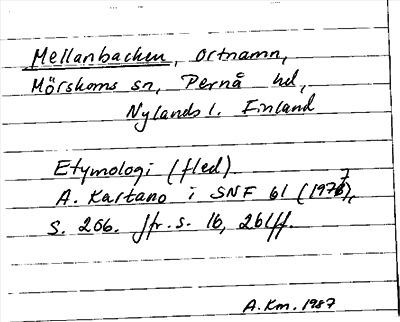 Mellanbacken, ortnamn,
Mörskoms sn, Pernå hd,
Nylands l. Finland
Etymologi (fled)
A. Kartano i SNF 61 (1977),
s. 266. Jfr. s. 16, 261ff.
A.Km. 1987